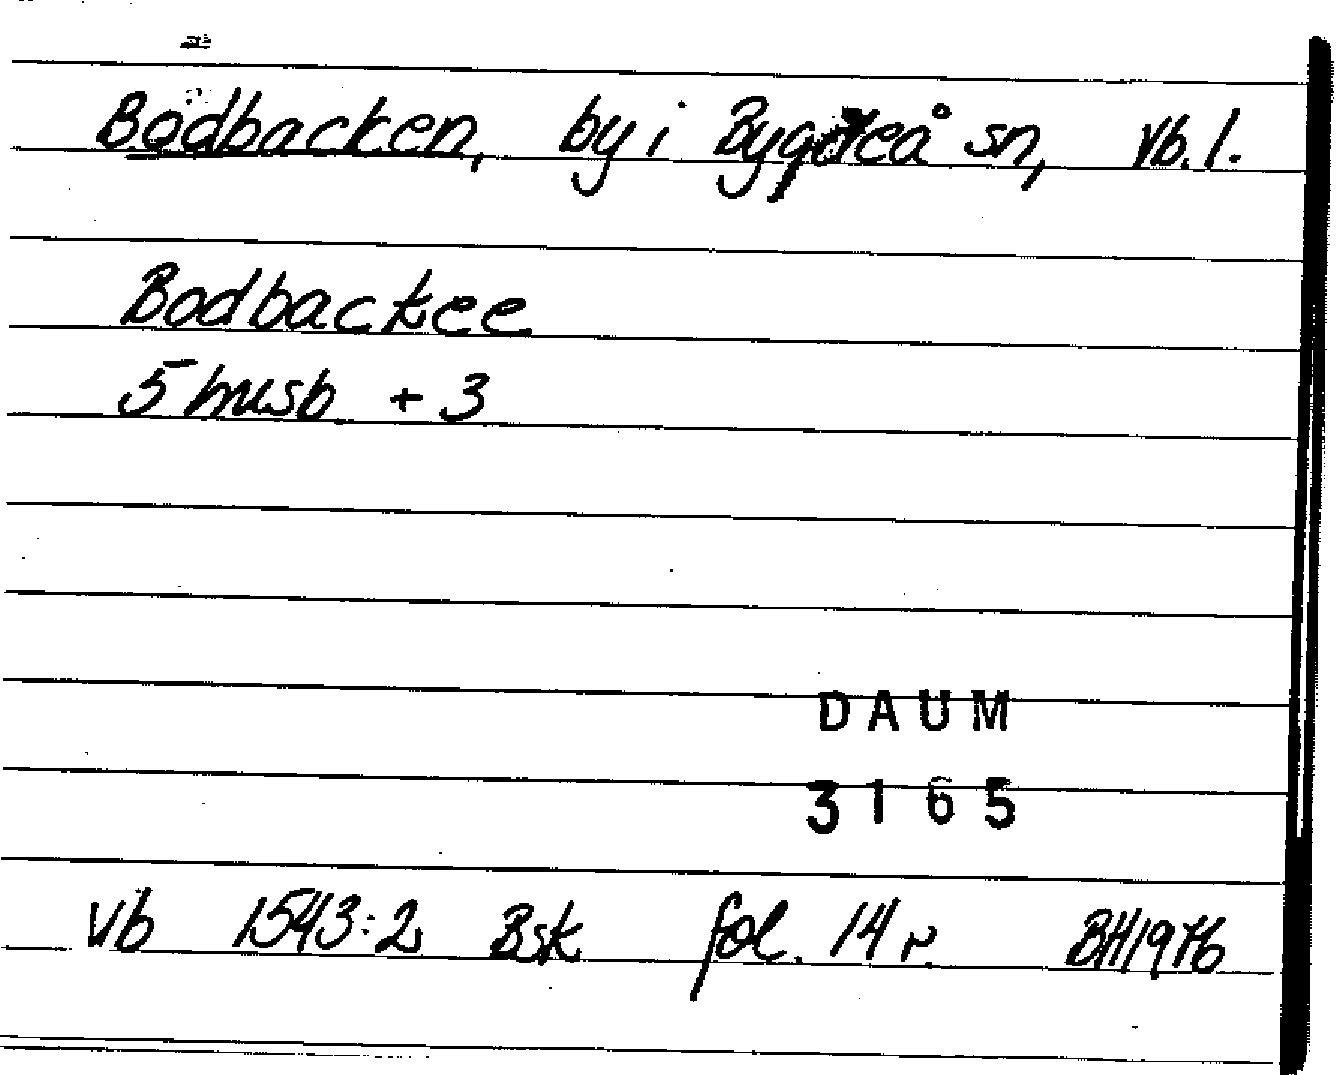 Bodbacken, by i Bygdeå sn, Vb. l.
Bodbackee
5 husb + 3
DAUM
3165
Vb 1543:2 Bsk fol. 14 r. BH 1976